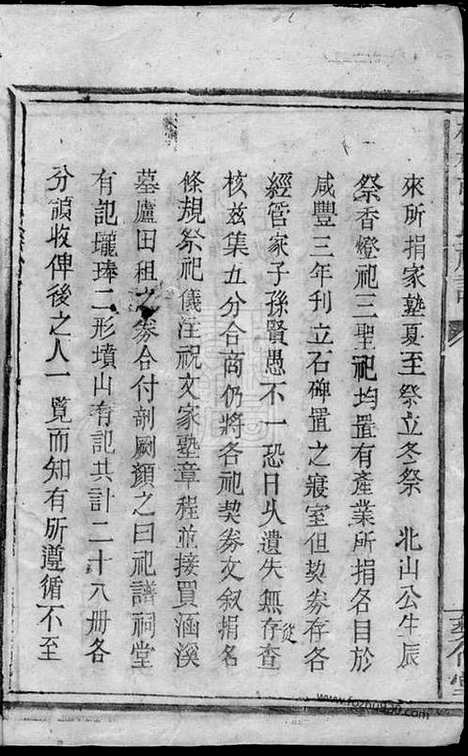 來所捐家塾夏至祭立冬祭　北山公生辰
祭香燈祀三聖祀均置有產業所捐名目於
咸豐三年刊立石碑置之寢室但契券存各
經管家子孫賢愚不一恐日久遺失無從存查
核兹集五分合商仍將各祀契券文叙捐名
條規祭祀儀注祝文家塾章程並接買涵溪
墓廬田租之券合付剞劂顏之曰祀譜祠堂
有記瓏瑧二形墳山有記共計二十八册各
分領收俾後之人一覽而知有所遵循不至